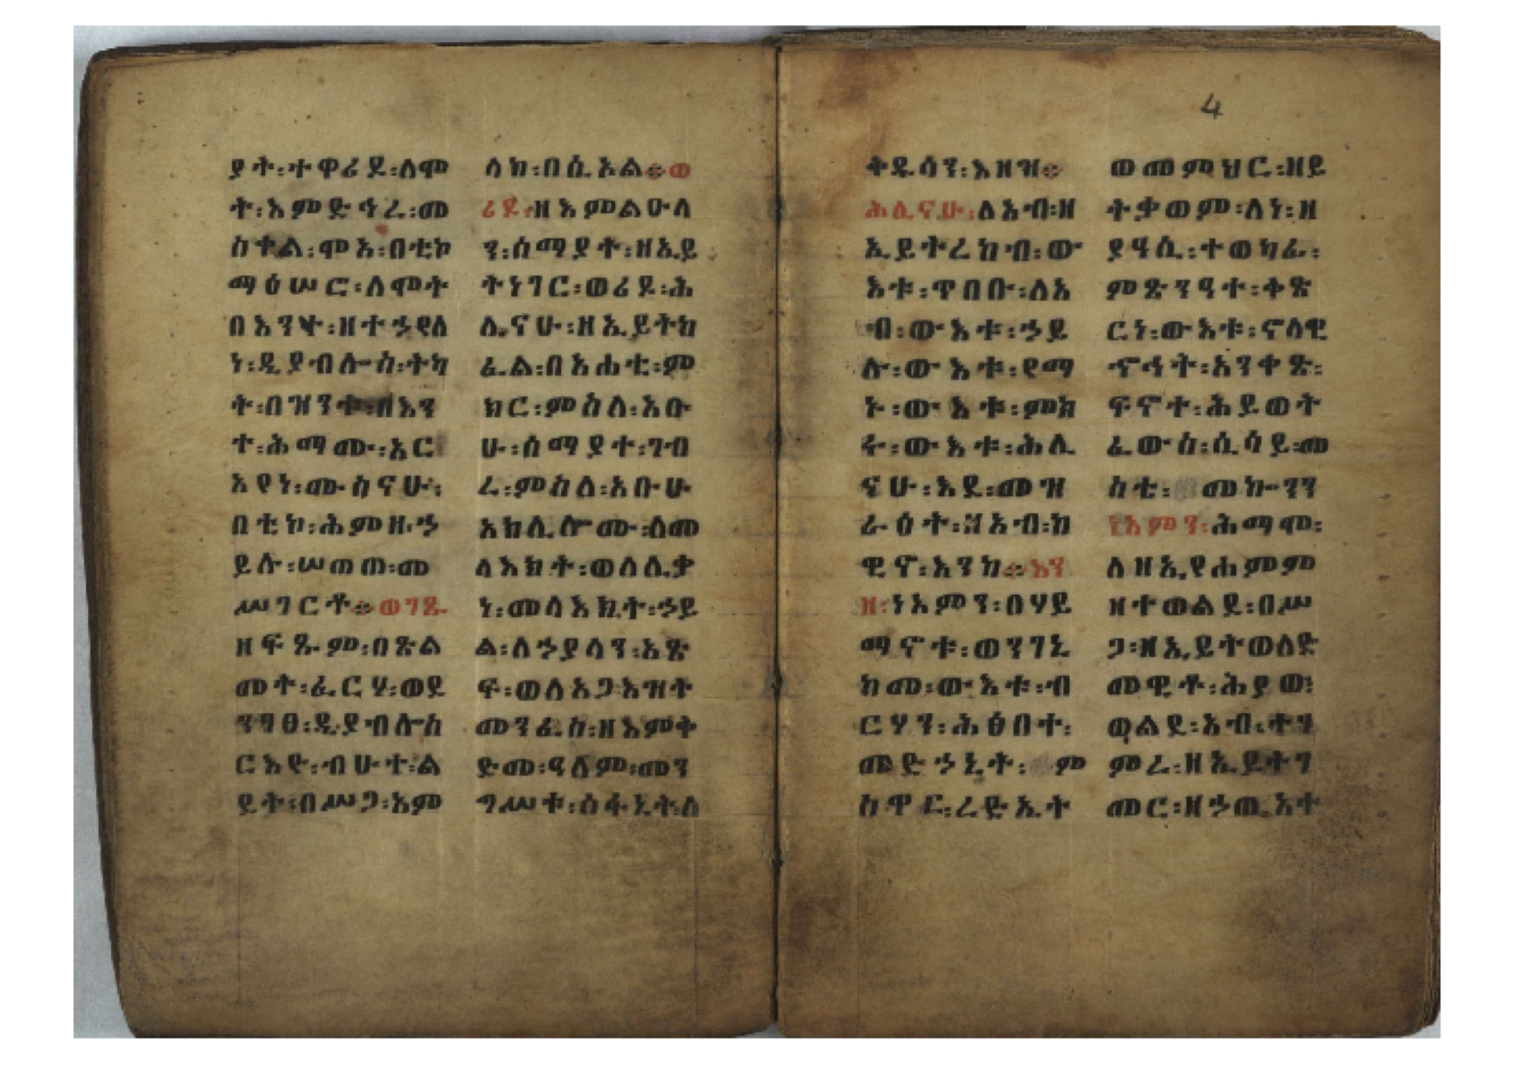 4
ያት፡ተዋሪዶ፡ለሞ
ት፡እምድኅረ፡መ
ስቀል፡ሞአ፡በቲኮ
ማዕሠሮ፡ለሞት
በእንተ፡ዘተኃየለ
ነ፡ዲያብሎስ፡ትካ
ት፡በዝንቱ፡ዘእን
ተ፡ሕማሙ፡አር
አየነ፡ሙስናሁ፡
በቲኮ፡ሕምዘ፡ኃ
ይሉ፡ሠጠጠ፡መ
ሥገርቶ።ወገጹ
ዘፍጹም፡በጽል
መት፡ፈርሃ፡ወደ
ንገፀ፡ዲያብሎስ
ርእዮ፡ብሁተ፡ል
ደት፡በሥጋ፡እም
ላክ፡በሲኦል።ወ
ሪዶ፡ዘእምልዑላ
ን፡ሰማያት፡ዘኢይ
ትነገር፡ወሪዶ፡ሕ
ሊናሁ፡ዘኢይትከ
ፈል፡በአሐቲ፡ም
ክር፡ምስለ፡አቡ
ሁ፡ሰማያተ፡ገብ
ረ፡ምስለ፡አቡሁ
አክሊሎሙ፡ለመ
ላእክት፡ወለሊቃ
ነ፡መላእክት፡ኃይ
ል፡ለኃያላን፡አጽ
ፍ፡ወለአጋእዝት
መንፈስ፡ዘእምቅ
ድመ፡ዓለም፡መን
ግሥቱ፡ሰፋኒት፡ለ
ቅዱሳን፡እዘዝ።
ሕሊናሁ፡ለአብ፡ዘ
ኢይትረከብ፡ው
እቱ፡ጥበቡ፡ለአ
ብ፡ውእቱ፡ኃይ
ሉ፡ውእቱ፡የማ
ኑ፡ውእቱ፡ምክ
ሩ፡ውእቱ፡ሕሊ
ናሁ፡እደ፡መዝ
ራዕት፡ዘአብ፡ከ
ዊኖ፡እንከ።እን
ዘ፡ነአምን፡በሃይ
ማኖቱ፡ወንገኒ
ከመ፡ውእቱ፡ብ
ርሃን፡ሕፅበተ፡
መድኃኒት፡ም
ስዋር፡ረድኤት
ወመምህር፡ዘይ
ትቃወም፡ለነ፡ዘ
ያዓሲ፡ተወካፊ፡
ምጽንዓተ፡ቀጽ
ርነ፡ውእቱ፡ኖላዊ
ኖኅት፡አንቀጽ፡
ፍኖተ፡ሕይወት
ፈውስ፡ሲሳይ፡መ
ስቴ፡መኰንን
ነአምን፡ሕማሞ፡
ለዘኢየሐምም
ዘተወልደ፡በሥ
ጋ፡ዘኢይትወለድ
መዊቶ፡ሕያው፡
ወልደ፡አብ፡ተገ
ምረ፡ዘኢይትገ
መር፡ዘኃጢአተ